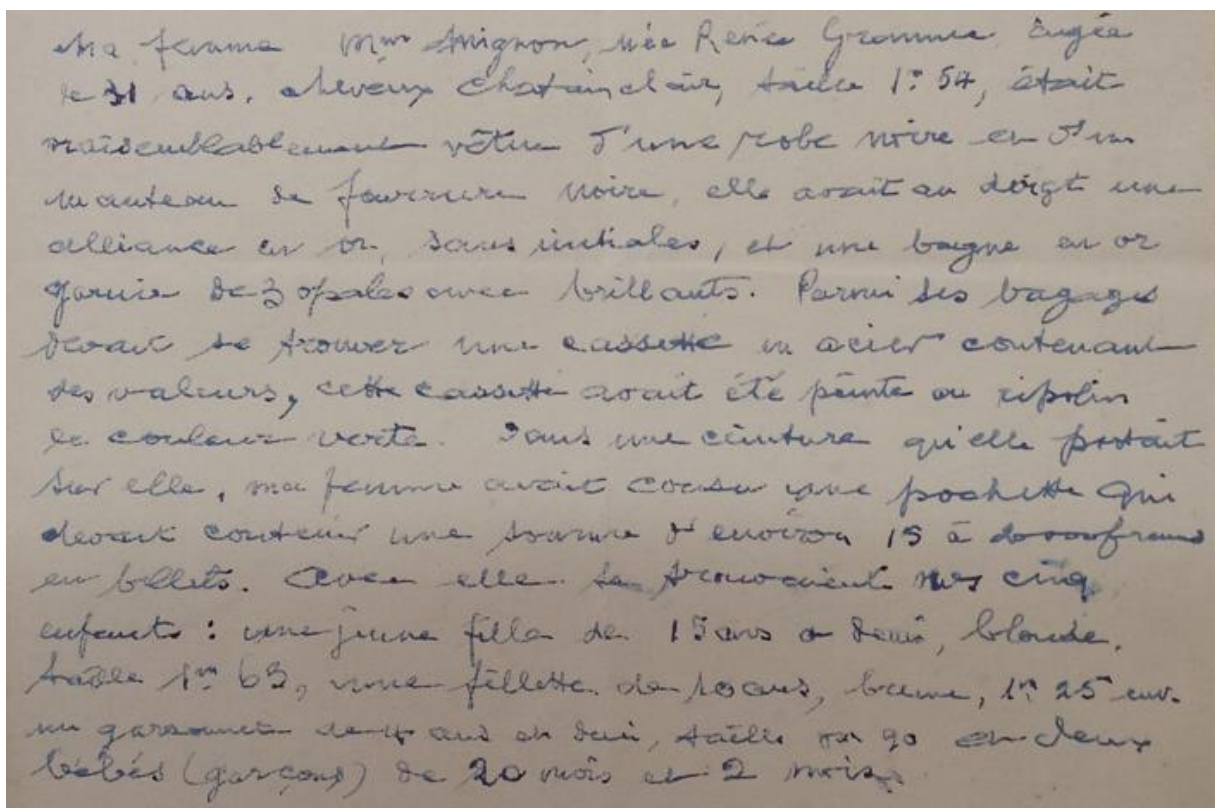 Ma femme Mme Mignon, née Renée Gramme, âgée
de 31 ans, cheveux chatain clair, taille 1m 54, était
vraisemblablement vêtue d'une robe noire et d'un
manteau de fourrure noire, elle avait au doigt une
alliance en or, sans initiales, et une bague en or
garnie de 3 opales avec brillants. Parmi ses bagages
devait se trouver une cassette en acier contenant
des valeurs, cette cassette avait été peinte au ripolin
de couleur verte. Dans une ceinture qu'elle portait
sur elle, ma femme avait cousu une pochette qui
devait contenir une somme d'environ 15 à francs
en billets. Avec elle se trouvaient nos cinq
enfants : une jeune fille de 15 ans et demi, blonde,
taille 1m 63, une fillette de 10 ans, brune, 1m 25 env.
un garçonnet de 4 ans et demi, taille 90 et deux
bébés (garçons) de 20 mois et 2 mois.